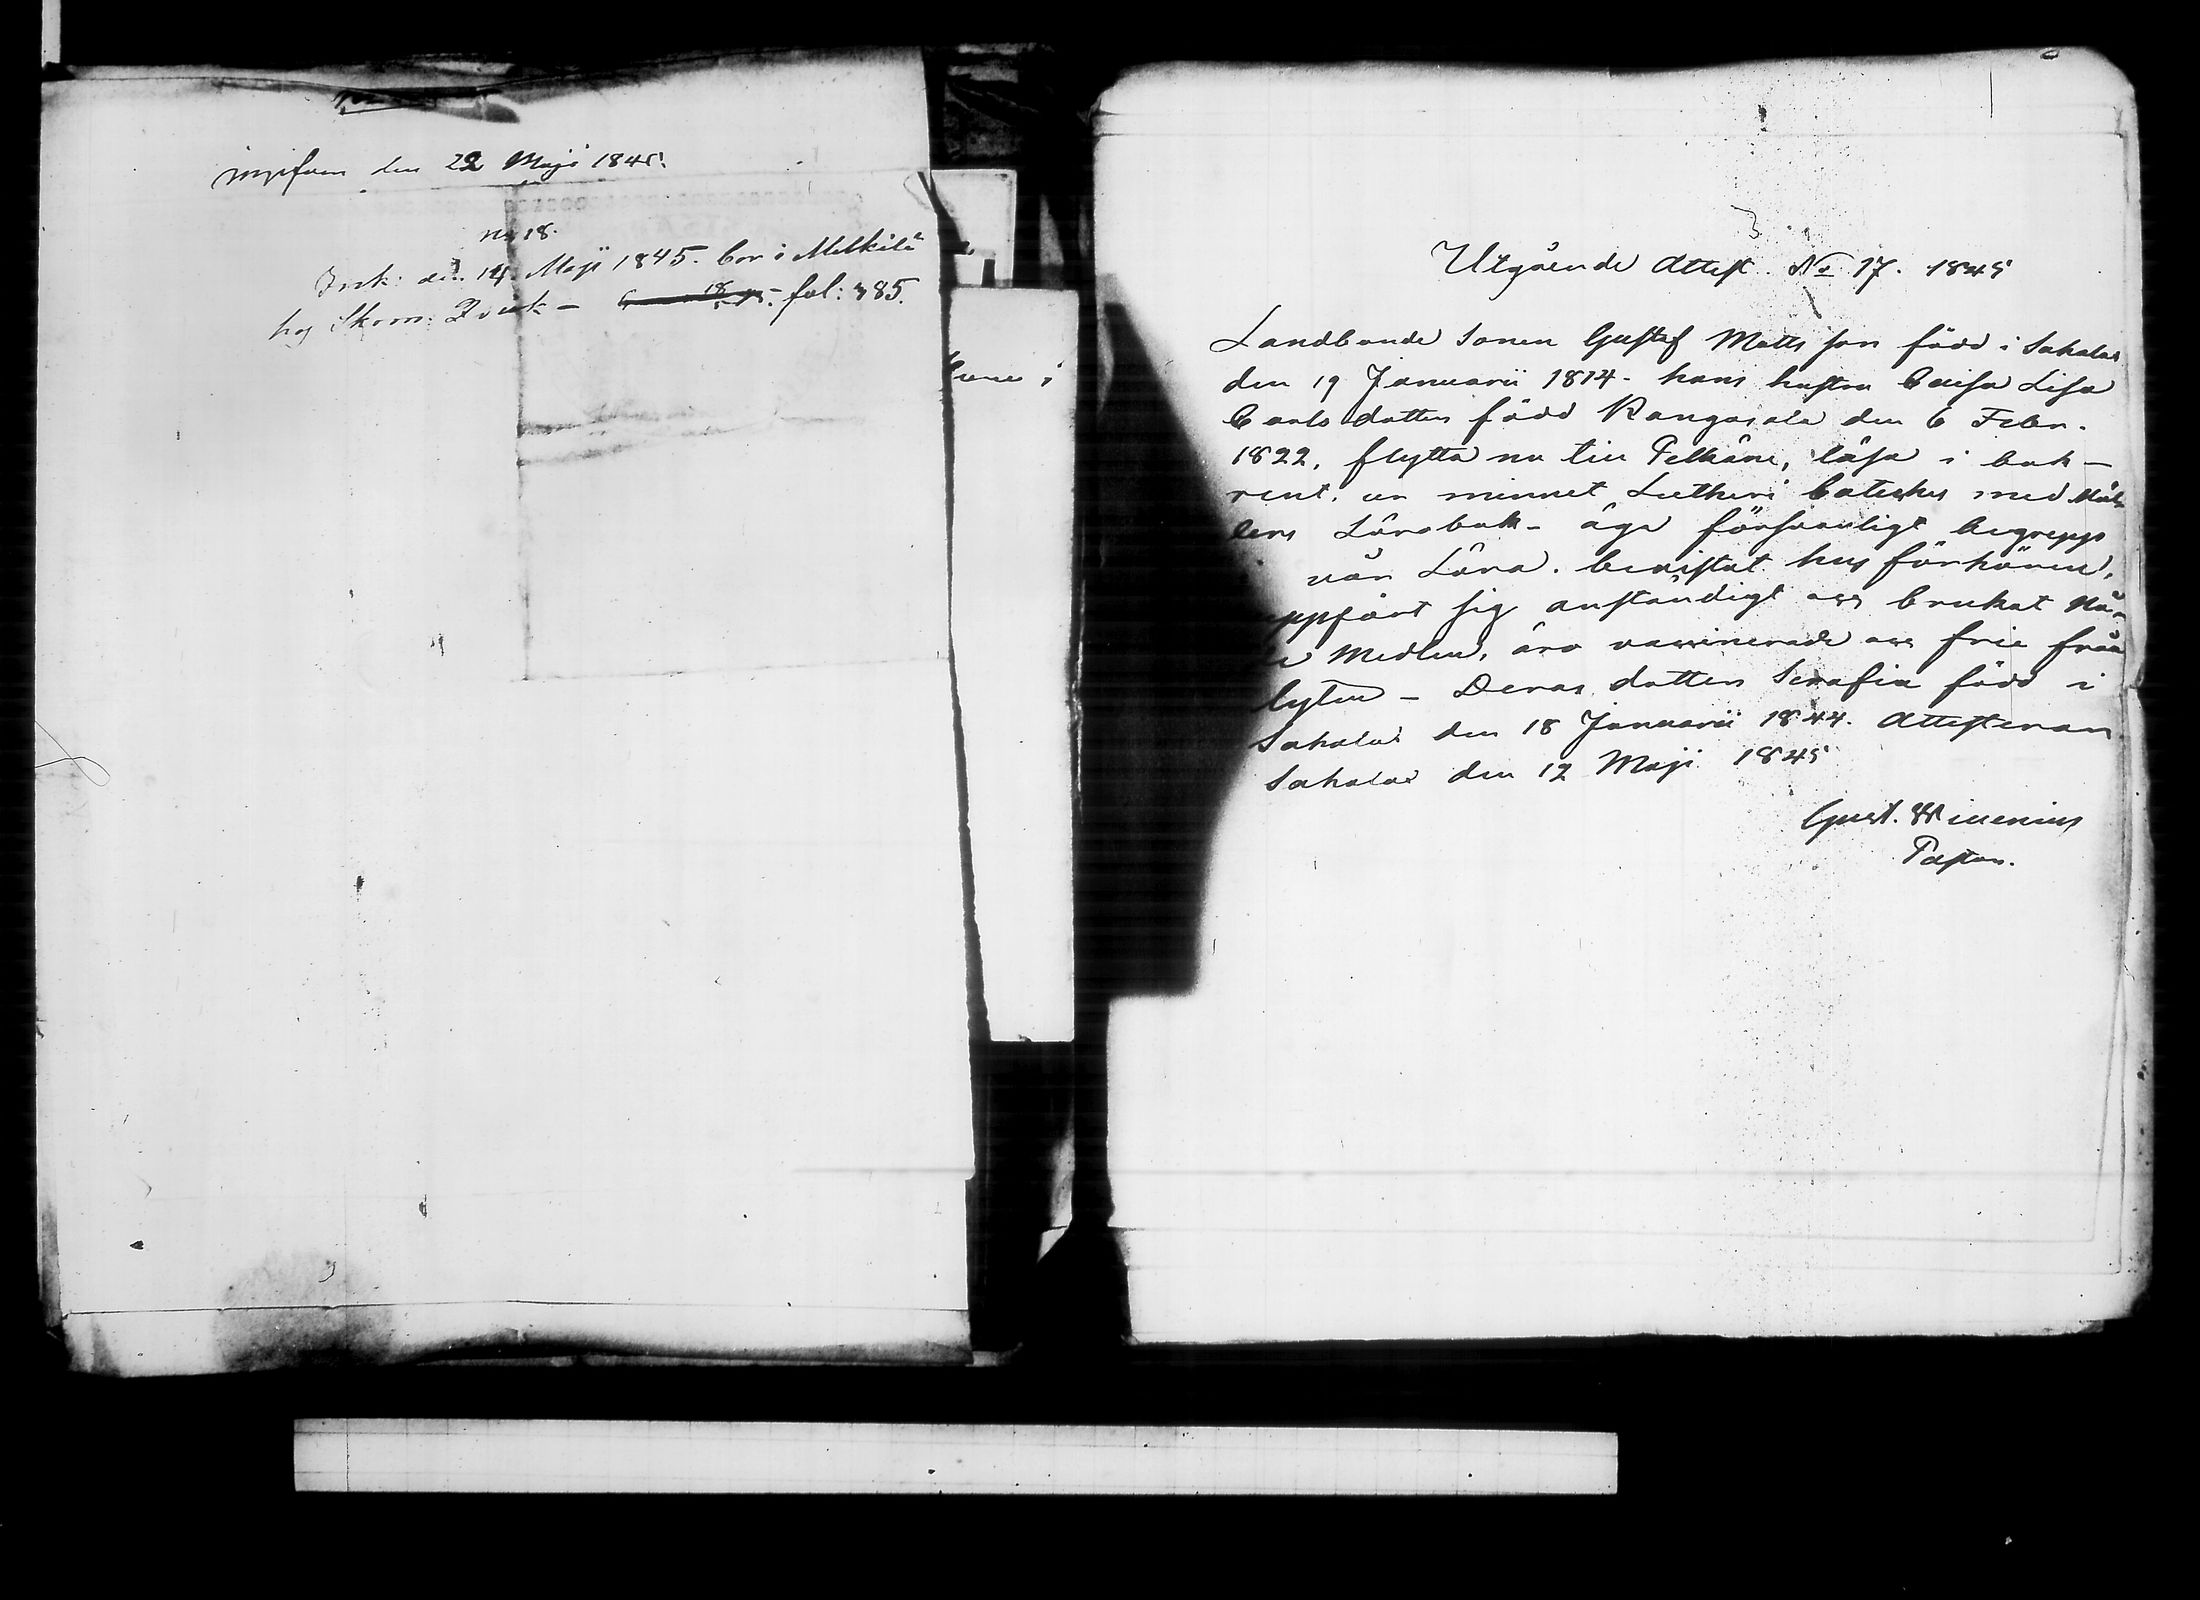 ingifven den 22 Maji 1845.
No 18.
Ink: den 14 Maji 1845. bor i Mälkilä
hos Skom: Z fol: 385.
Utgående Attest No 17. 1845
Landbonde Sonen Gustaf Matts son född i Sahalax
den 19 Januarii 1814 - hans hustru Caisa Lisa
Carls dotter född Kangasala den 6 Febr.
1822, flytta nu till Pelkäne, läsa i bok -
rent, ur minnet Lutheri Cateches med Möl-
lers Lärobok - äga försvarligt begrepp
vår Lära. bevistat hus förhören,
uppfört sig anständigt och brukat Nå-
de Medlen, äro vaccinerade och frie från
lyten - Deras dotter Serafia född i
Sahalax den 18 Januarii 1844. Attesteras
Sahalax den 12 Maji 1845
Gust. Winenius
Pastor.